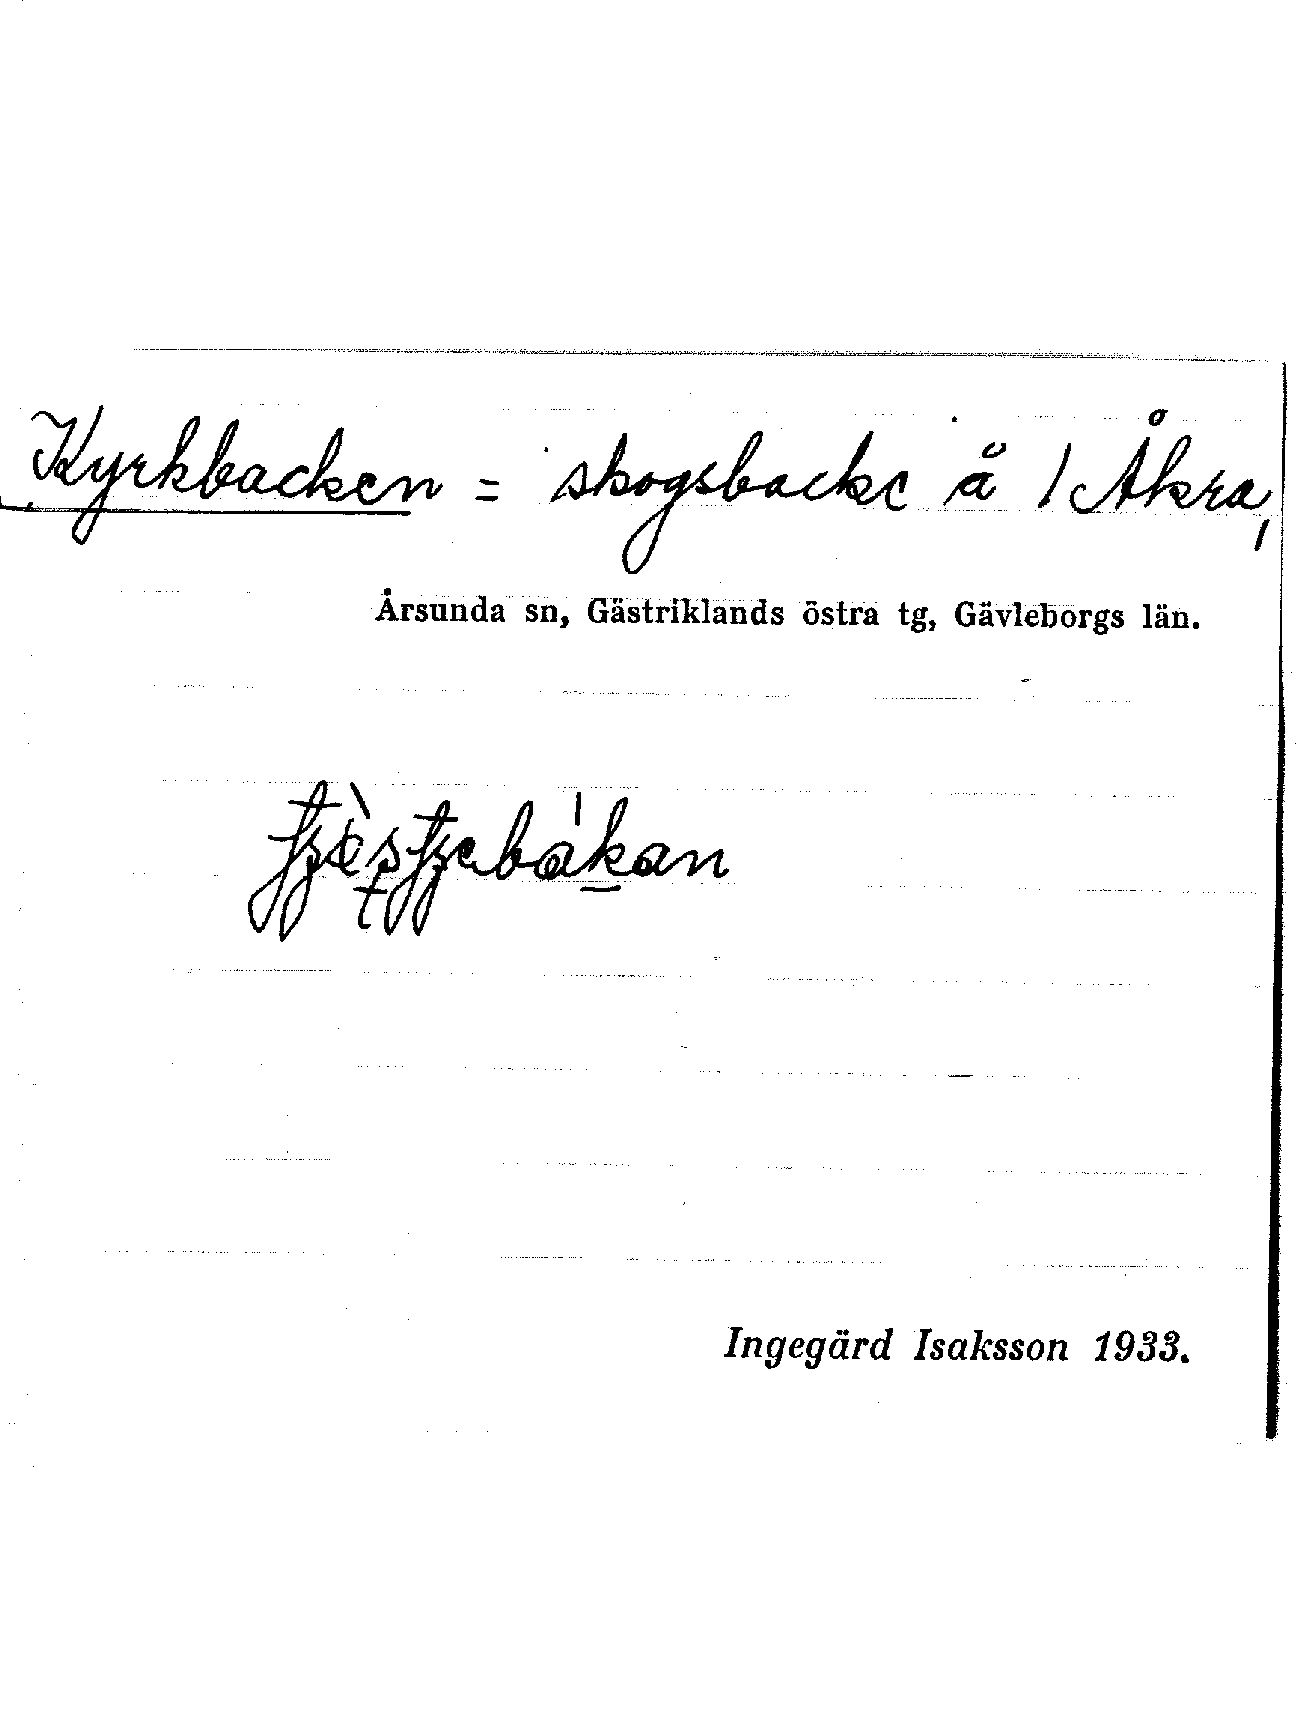 Kyrkbacken = skogsbacke å / Åkra,
Årsunda sn, Gästriklands östra tg, Gävleborgs län.
Ingegärd Isaksson 1933.